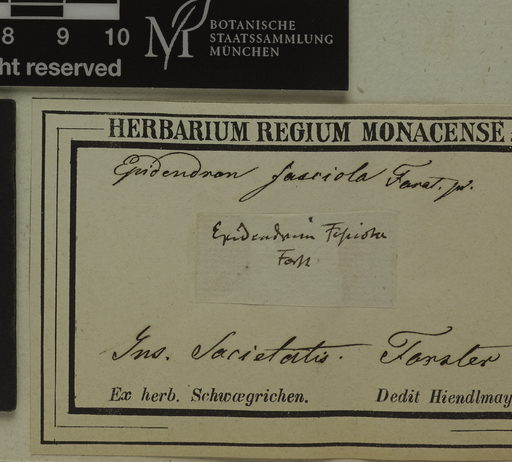 8 9 10
ht reserved
BOTANISCHE
STAATSSAMMLUNG
MÜNCHEN
HERBARIUM REGIUM MONACENSE
Epidendron fasciola Forst. pr.
Epidendrum Fasciola
Forst
Ins. Societatis. Forster
Ex herb. Schwægrichen. Dedit Hiendlmay